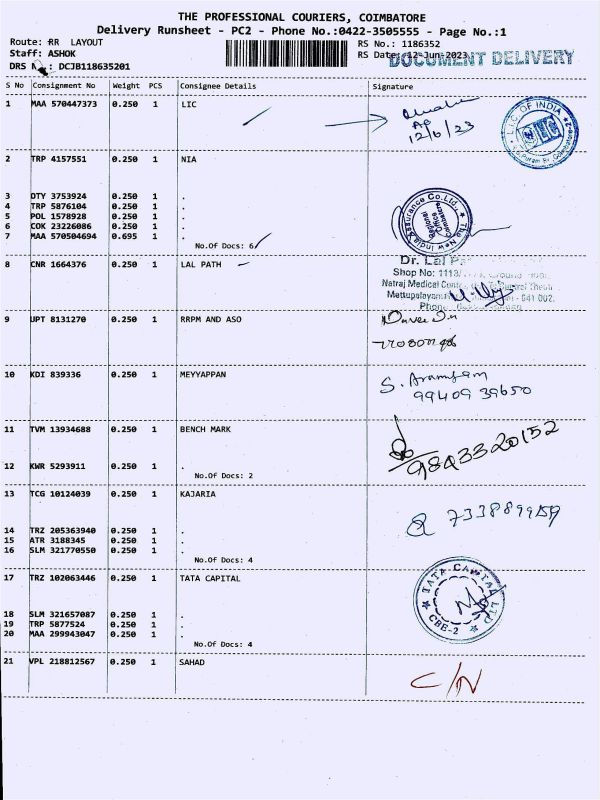 THE PROFESSIONAL COURIERS, COIMBATORE
Delivery Runsheet - PC2 - Phone No.:0422-3505555 - Page No.:1
Route: RR LAYOUT
RS No.: 1186352
Staff: ASHOK
RS Date: 12-Jun-2023
DOCUMENT DELIVERY
DRS : DCJB118635201
S No Consignment No Weight PCS Consignee Details Signature
1 MAA 570447373 0.250 1 LIC
12/6/23
L.I.C OF INDIA
LIC
2 TRP 4157551 0.250 1 NIA
3 DTY 3753924 0.250 1 .
4 TRP 5876104 0.250 1 .
5 POL 1578928 0.250 1 .
6 COK 23226086 0.250 1 .
7 MAA 570504694 0.695 1 .
No.Of Docs: 6
The New India Assurance Co.Ltd.,
8 CNR 1664376 0.250 1 LAL PATH
Dr. Lal
Shop No: 1118/
Natraj Medical
Mettupalayam - 641 002.
Phone
9 UPT 8131270 0.250 1 RRPM AND ASO
10 KDI 839336 0.250 1 MEYYAPPAN
S.
99409 39650
11 TVM 13934688 0.250 1 BENCH MARK
9843320152
12 KWR 5293911 0.250 1 .
No.Of Docs: 2
13 TCG 10124039 0.250 1 KAJARIA
14 TRZ 205363940 0.250 1 .
15 ATR 3188345 0.250 1 .
16 SLM 321770550 0.250 1 .
No.Of Docs: 4
17 TRZ 102063446 0.250 1 TATA CAPITAL
TATA CAPITAL LTD
CBE-2
18 SLM 321657087 0.250 1 .
19 TRP 5877524 0.250 1 .
20 MAA 299943047 0.250 1 .
No.Of Docs: 4
21 VPL 218812567 0.250 1 SAHAD
C/N